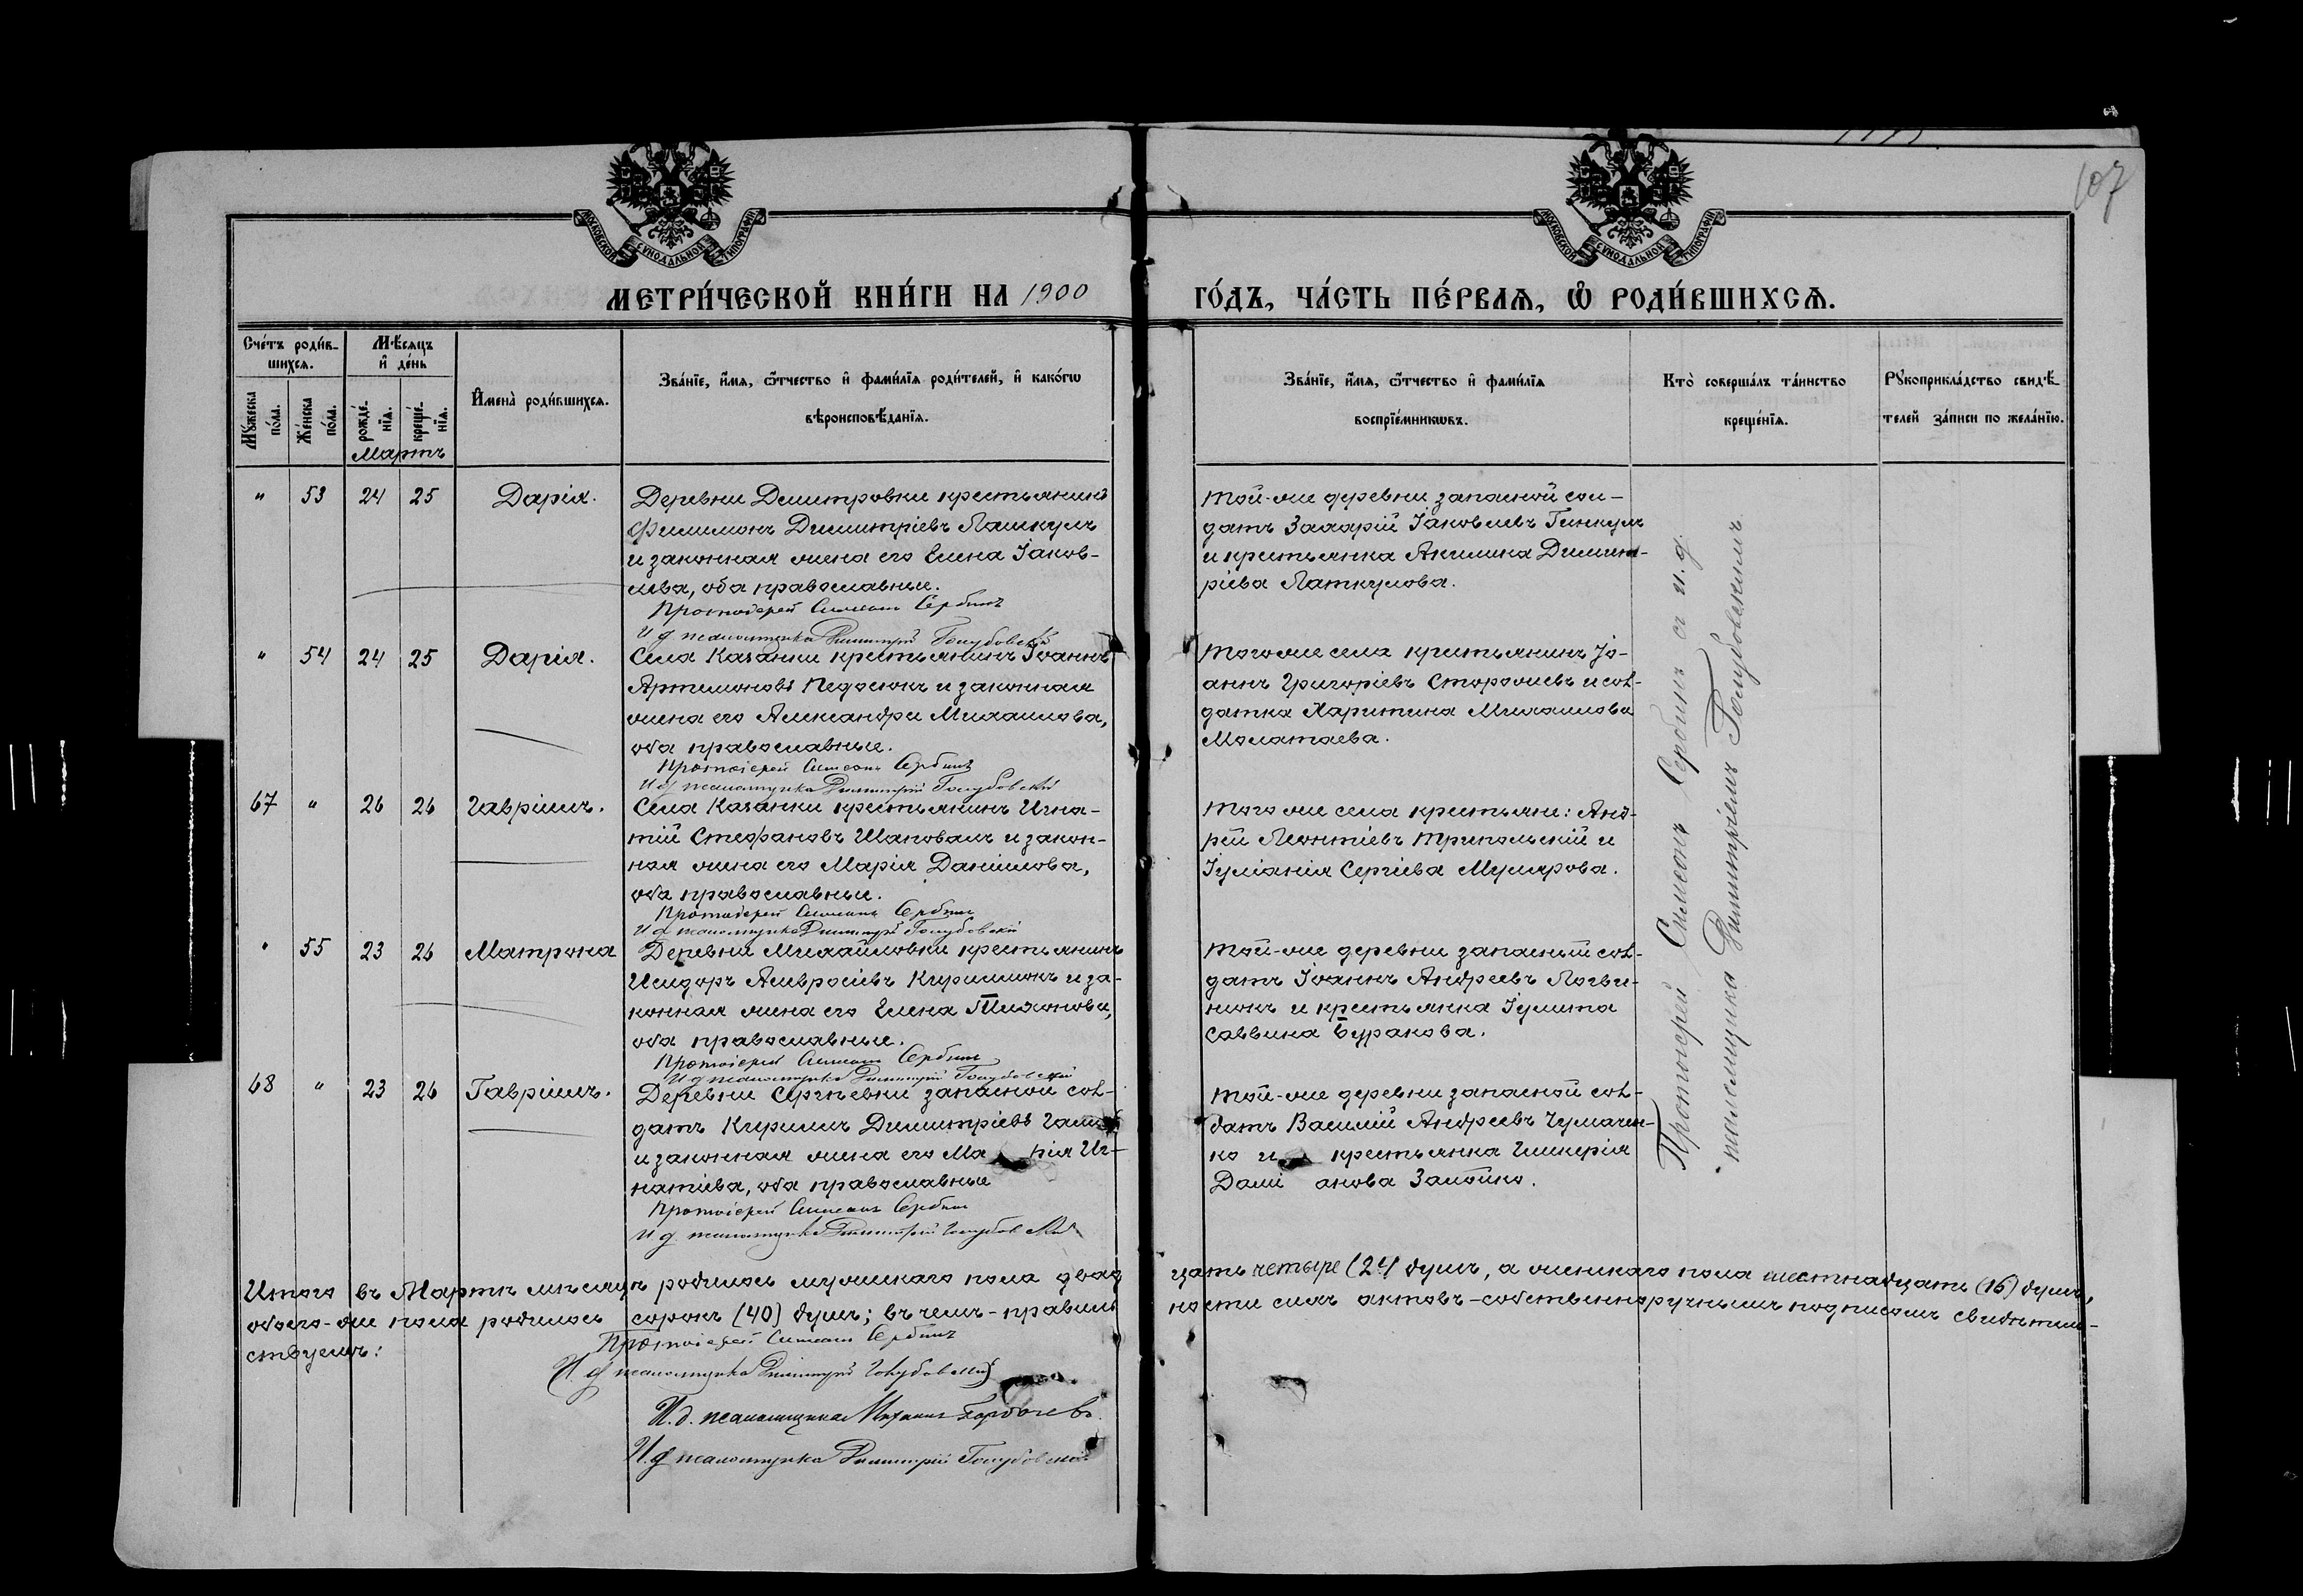 107
МОСКОВСКОЙ СѴНОДАЛЬНОЙ ТИПОГРАФІИ
МОСКОВСКОЙ СѴНОДАЛЬНОЙ ТИПОГРАФІИ
МЕТРИ́ЧЕСКОЙ КНИ́ГИ НА 1900
ГО́ДЪ, ЧА́СТЬ ПЕ́РВАѦ, Ѽ РОДИ́ВШИХСѦ.
Сче́тъ роди́в-
шихсѧ.
Мꙋ́жеска по́ла.
Же́нска по́ла.
Мѣ́сяцъ
и҆ де́нь
рожде́-
нїѧ.
креще́-
нїѧ.
Мартъ
И҆мена̀ роди́вшихсѧ.
Зва́нїе, и҆́мѧ, ѻ҆́тчество и҆ фами́лїѧ роди́телей, и҆ како́гѡ
вѣроисповѣ́данїѧ.
Зва́нїе, и҆́мѧ, ѻ҆́тчество и҆ фами́лїѧ
воспрїе́мникѡвъ.
Кто̀ соверша́лъ та́инство
креще́нїѧ.
Рꙋкоприкла́дство свидѣ́-
телей за́писи по жела́нїю.
" 53 24 25 Дарія.
Деревни Димитровки крестьянинъ
Филимонъ Димитріевъ Пашкулъ
и законная жена его Елена Іаков-
лева, оба православные.
Протоіерей Симеонъ Сербинъ
И д псаломщика Димитрій Голубовскій
Той-же деревни запасной сол-
датъ Захарій Іаковлевъ Гинкулъ
и крестьянка Акилина Димит-
ріева Паткулова.
" 54 24 25 Дарія.
Села Казанки крестьянинъ Іоаннъ
Артемоновъ Недосюкъ и законная
жена его Александра Михаилова,
оба православные.
Протоіерей Симеонъ Сербинъ
И д псаломщика Димитрій Голубовскій
Того же села крестьянинъ Іо-
аннъ Григоріевъ Сторожевъ и сол-
датка Харитина Михаилова
Молатаева.
67 " 26 26 Гавріилъ.
Села Казанки крестьянинъ Игна-
тій Стефановъ Шаповалъ и закон-
ная жена его Марія Даніилова,
оба православные.
Протоіерей Симеонъ Сербинъ
И д псаломщика Димитрій Голубовскій
Того же села крестьяне: Анд-
рей Леонтіевъ Трипольскій и
Іуліанія Сергіева Мулярова.
" 55 23 26 Матрона
Деревни Михайловки крестьянинъ
Исидоръ Амвросіевъ Кириллюкъ и за-
конная жена его Елена Тихонова,
оба православные.
Протоіерей Симеонъ Сербинъ
И д псаломщика Димитрій Голубовскій
Той-же деревни запасный сол-
датъ Іоаннъ Андреевъ Логви-
нюкъ и крестьянка Іулита
Саввина Буракова.
68 " 23 26 Гавріилъ.
Деревни Сергѣевки запасной сол-
датъ Кириллъ Димитріевъ
и законная жена его Марія Иг-
натіева, оба православные
Протоіерей Симеонъ Сербинъ
И д псаломщика Димитрій Голубовскій
Той-же деревни запасной сол-
датъ Василій Андреевъ Чумачен-
ко и крестьянка Гликерія
Даміанова Запойко.
Протоіерей Симеонъ Сербинъ съ и. д.
псаломщика Димитріемъ Голубовскимъ
Итого въ Мартѣ мѣсяцѣ родилось мужескаго пола двад
цать четыре (24) душъ, а женскаго пола шестнадцать (16) душъ,
обоего-же пола родилось сорокъ (40) душъ; въ чемъ-правиль
ности сихъ актовъ-собственноручнымъ подписомъ свидѣтель-
ствуемъ:
Протоіерей Симеонъ Сербинъ
(И. д псаломщика Димитрій Голубовскій)
И. д. псаломщика Михаилъ Горбачевъ.
И. д псаломщика Димитрій Голубовскій